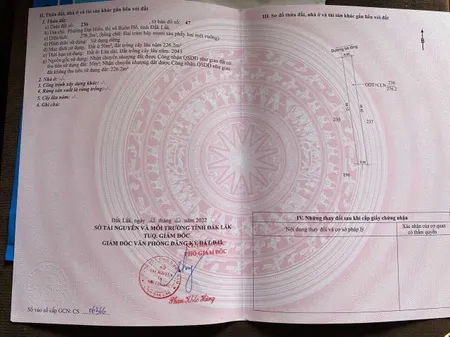 II. Thửa đất, nhà ở và tài sản khác gắn liền với đất
1. Thửa đất:
a) Thửa đất số: 236 , tờ bản đồ số: 47
b) Địa chỉ: Phường Đạt Hiếu, thị xã Buôn Hồ, tỉnh Đắk Lắk.
c) Diện tích: 276,2m², (bằng chữ: Hai trăm bảy mươi sáu phẩy hai mét vuông).
d) Hình thức sử dụng: Sử dụng riêng
đ) Mục đích sử dụng: Đất ở 50m²; Đất trồng cây lâu năm 226,2m²
e) Thời hạn sử dụng: Đất ở: Lâu dài; Đất trồng cây lâu năm: 2043
g) Nguồn gốc sử dụng: Nhận chuyển nhượng đất được Công nhận QSDĐ như giao đất có
thu tiền sử dụng đất 50m²; Nhận chuyển nhượng đất được Công nhận QSDĐ như giao đất
không thu tiền sử dụng đất 226,2m²
2. Nhà ở: -/-
3. Công trình xây dựng khác: -/-
4. Rừng sản xuất là rừng trồng: -/-
5. Cây lâu năm: -/-
6. Ghi chú:
Đắk Lắk, ngày tháng năm 2022
SỞ TÀI NGUYÊN VÀ MÔI TRƯỜNG TỈNH ĐẮK LẮK
TUQ. GIÁM ĐỐC
GIÁM ĐỐC VĂN PHÒNG ĐĂNG KÝ ĐẤT ĐAI
PHÓ GIÁM ĐỐC
Phan Khắc Hùng
Số vào sổ cấp GCN: CS
III. Sơ đồ thửa đất, nhà ở và tài sản khác gắn liền với đất
Đường bê tông
ODT+CLN
236
276.2
235
237
IV. Những thay đổi sau khi cấp giấy chứng nhận
Nội dung thay đổi và cơ sở pháp lý
Xác nhận của cơ quan
có thẩm quyền